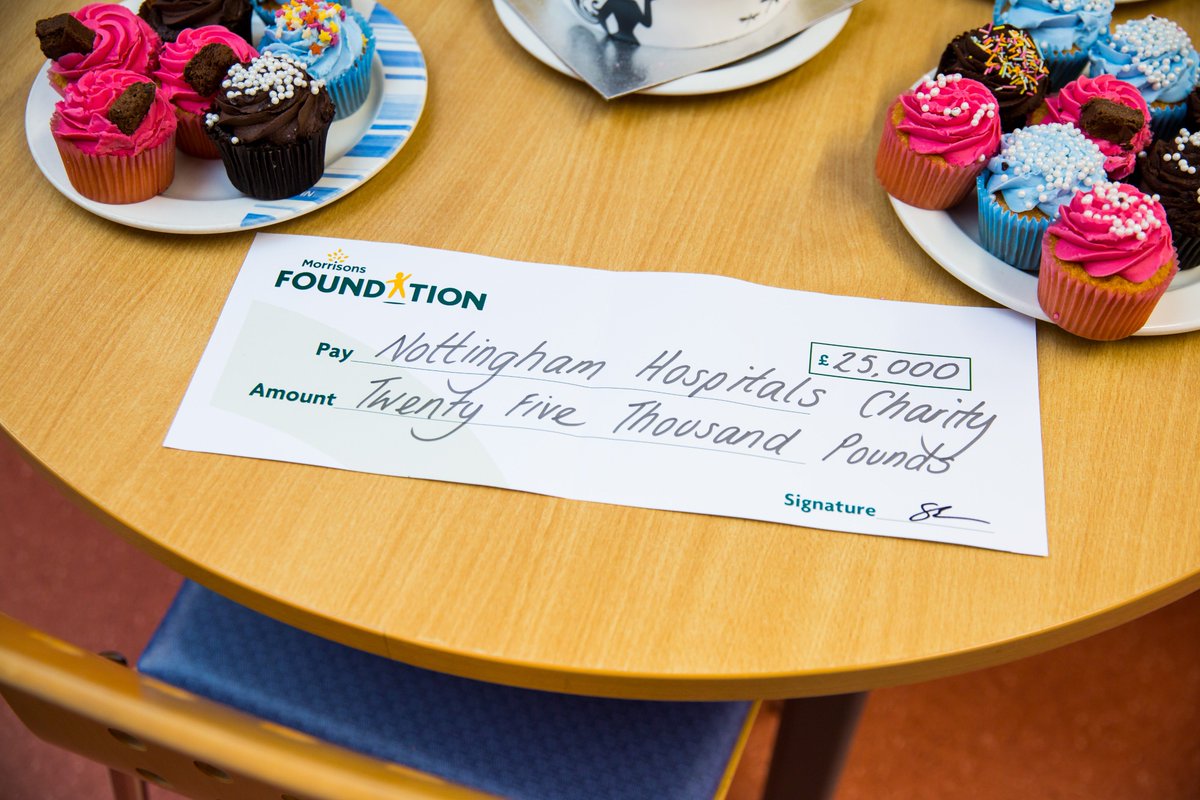 Morrisons
FOUNDATION
Pay Nottingham Hospitals Charity
£25,000
Amount Twenty Five Thousand Pounds
Signature